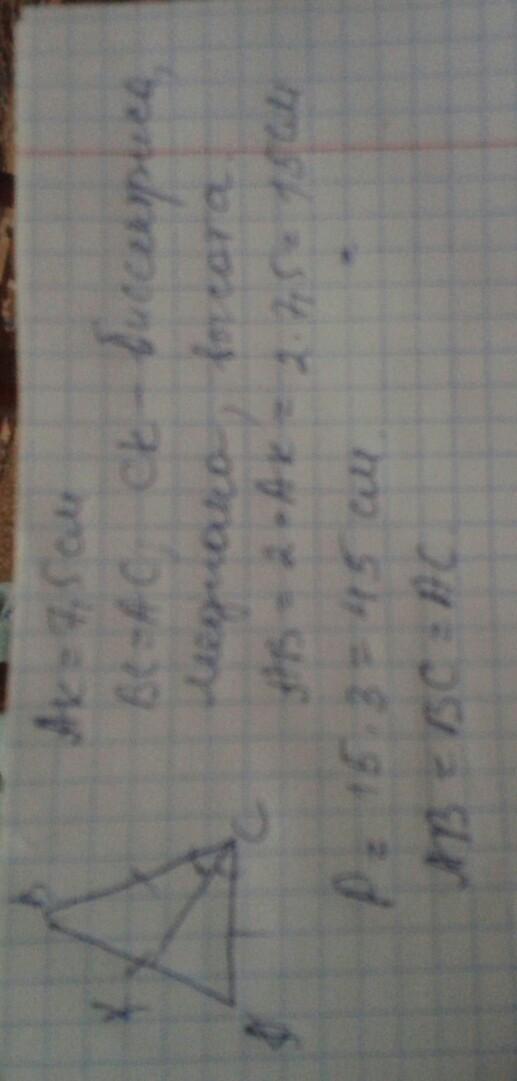 AK = 7,5 см
BC = AC, CK - биссектриса,
медиана, высота.
AB = 2 · AK = 2 · 7,5 = 15 см
P = 15 · 3 = 45 см.
AB = BC = AC
B
K
C